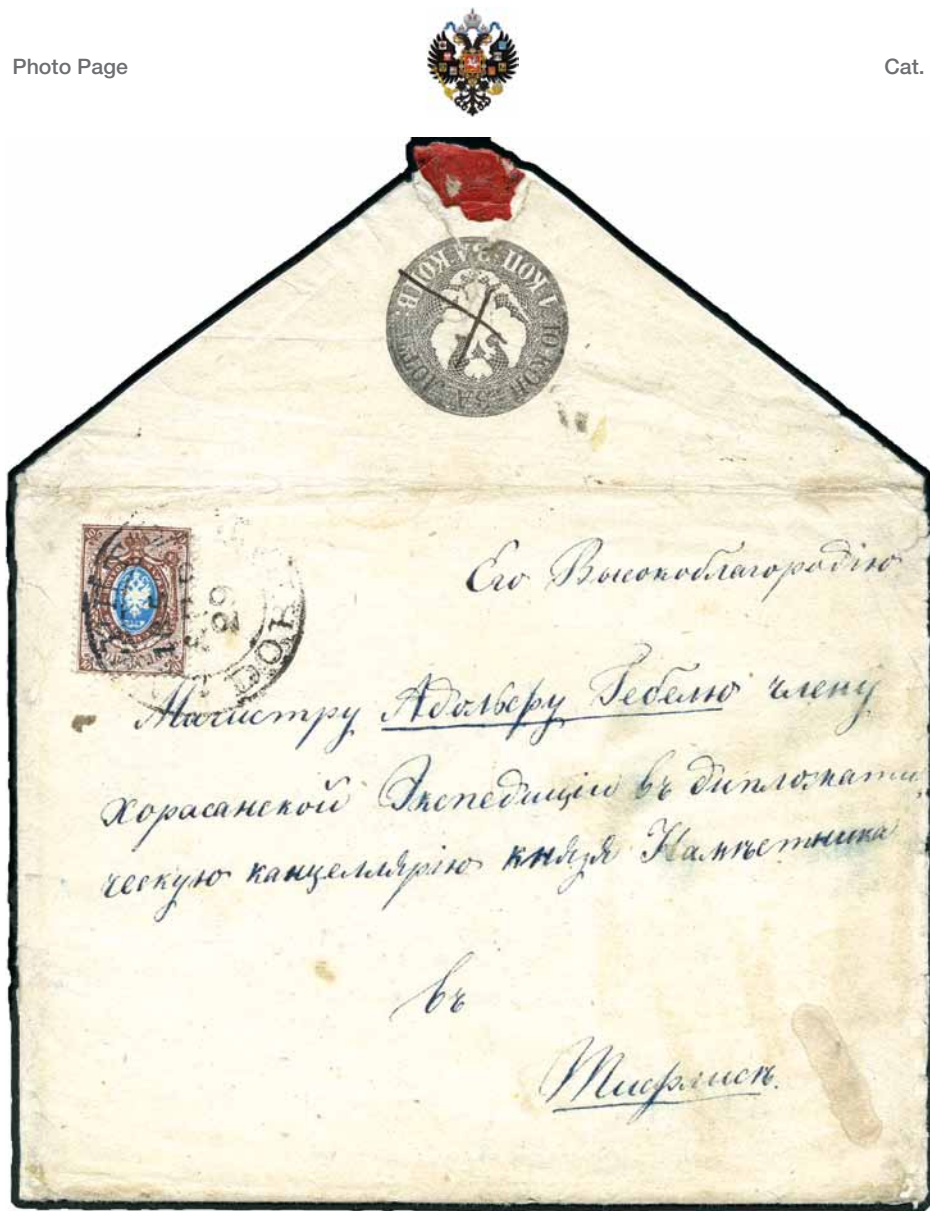 Photo Page
Cat.
1 КОП. ЗА КОНВ.
10 КОП. ЗА ЛОТЪ
Его Высокоблагородію
Магистру Адольфу Гебелю члену
Хорасанской Экспедиціи въ дипломати
ческую канцеллярію князя Намѣстника
въ
Тифлисѣ.